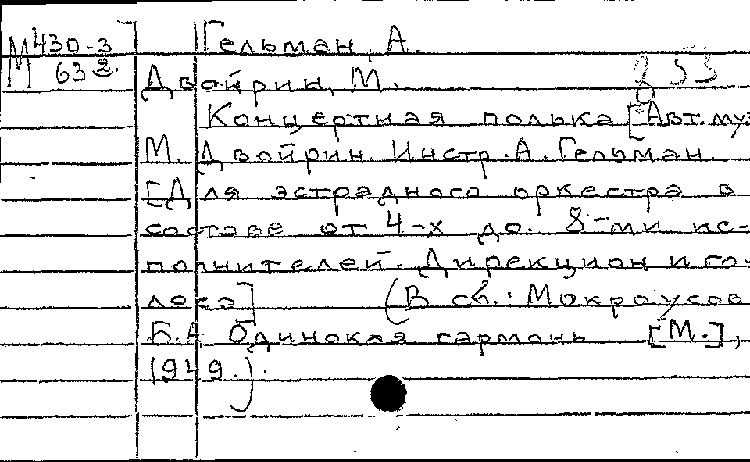 М430-3 Гельман, А.
М 632. Двойрин, М. 253
Концертная полька [Авт.муз.
М. Двойрин. Инстр. А. Гельман.
[Для эстрадного оркестра в
составе от 4-х до 8-ми ис-
полнителей. Дирекцион и го-
лоса] (В сб.: Мокроусов
Б.А. Одинокая гармонь [М.],
1949.).